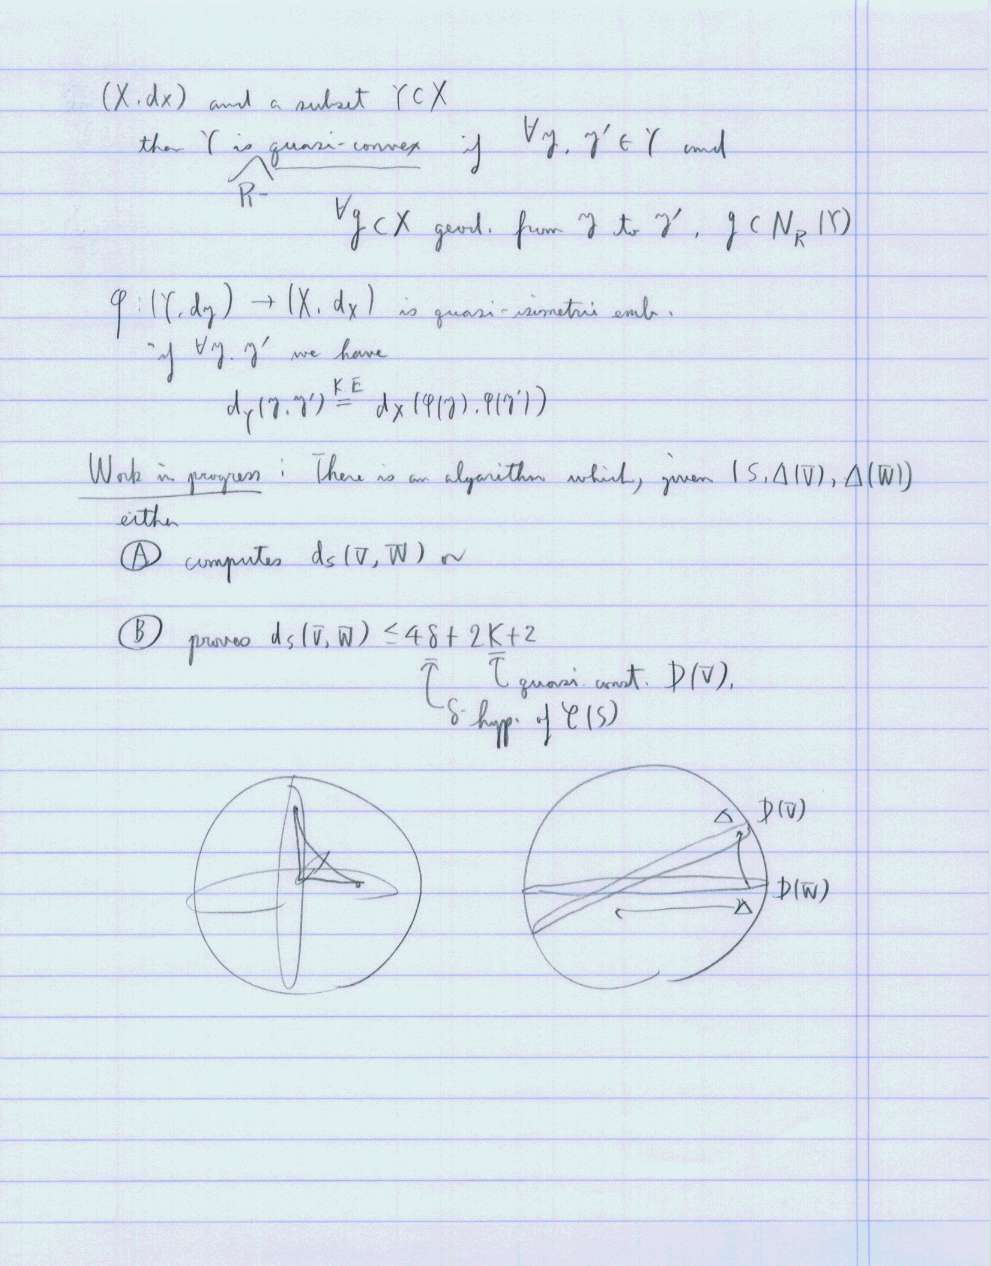 (X, dx) and a subset Y⊂X
then Y is quasi-convex if ∀y, y' ∈ Y and
R-
∀g⊂X geod. from y to y', g⊂N_R(Y)
φ: (Y, dy) → (X, dx) is quasi-isimetric emb.
if ∀y, y' we have
d_Y(y, y') =^{K E} d_X(φ(y), φ(y'))
Work in progress: There is an algorithm which, given (S, Δ(V̄), Δ(W̄))
either
Ⓐ computes d_S(V̄, W̄) or
Ⓑ proves d_S(V̄, W̄) ≤ 4δ + 2K + 2
quasi. const. D(V̄),
δ-hyp. of C(S)
Δ D(V̄)
D(W̄)
Δ